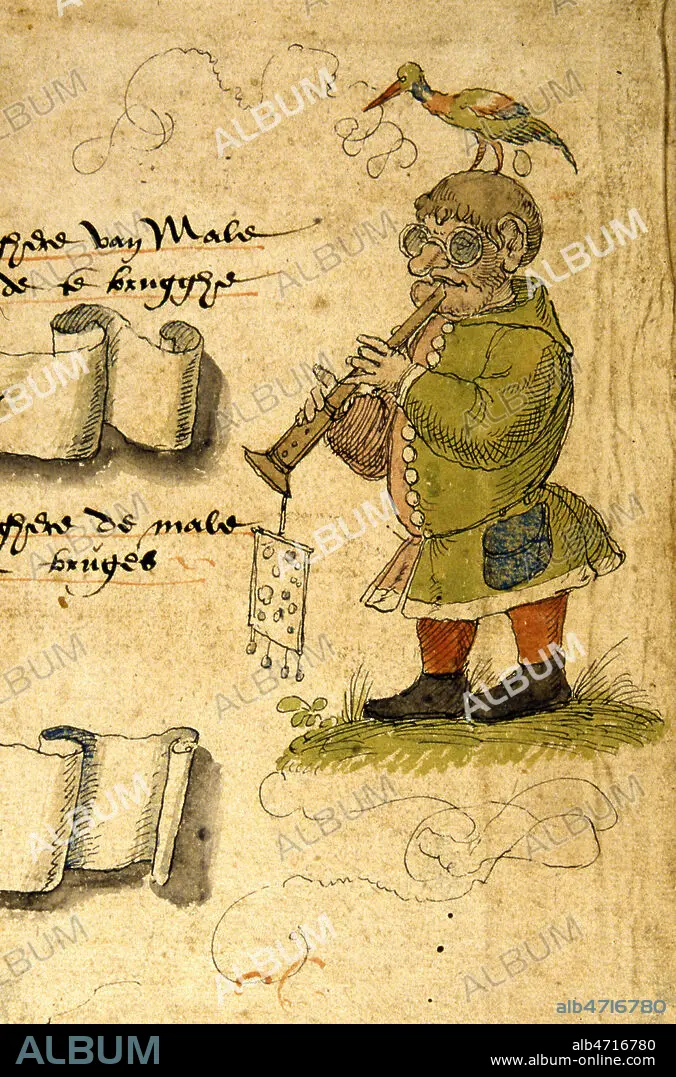 van Male
de te brugghe
de male
bruges
alb4716780
ALBUM
alb4716780
www.album-online.com